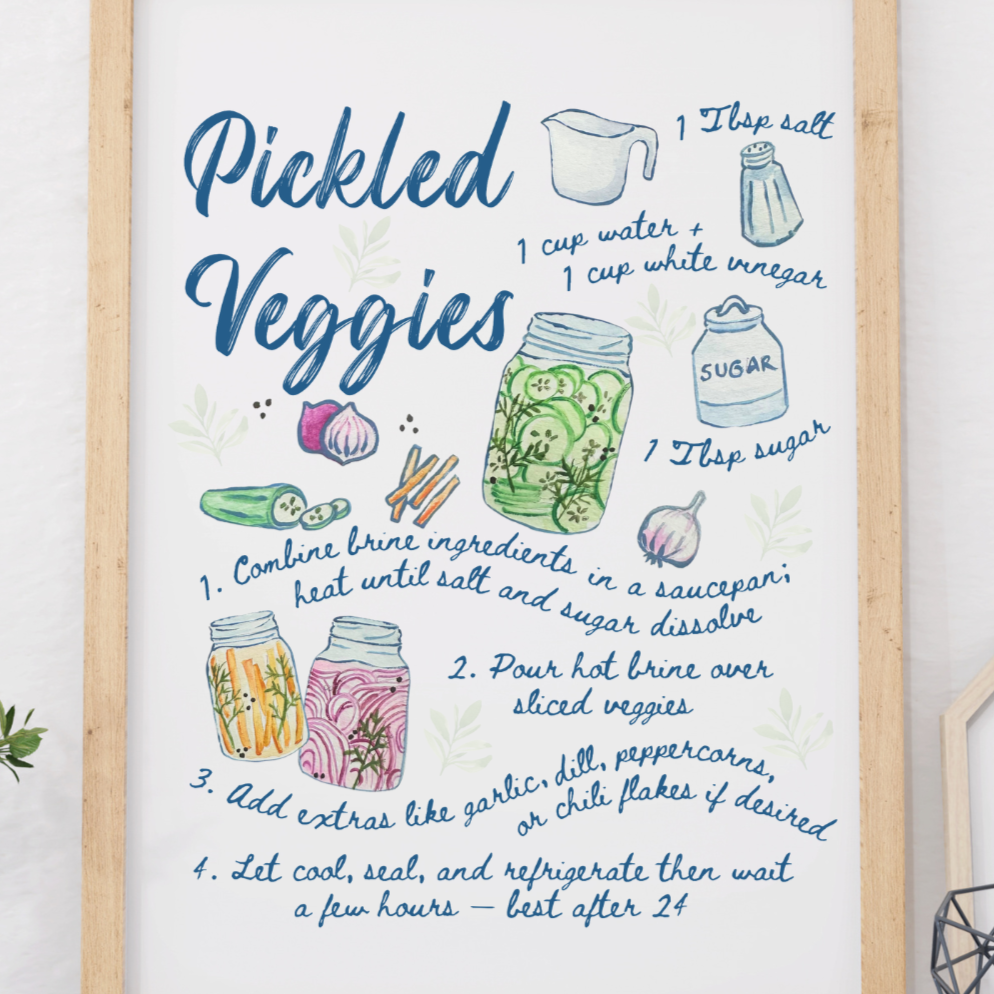 Pickled
Veggies
1 Tbsp salt
1 cup water +
1 cup white vinegar
SUGAR
1 Tbsp sugar
1. Combine brine ingredients in a saucepan;
heat until salt and sugar dissolve
2. Pour hot brine over
sliced veggies
3. Add extras like garlic, dill, peppercorns,
or chili flakes if desired
4. Let cool, seal, and refrigerate then wait
a few hours – best after 24